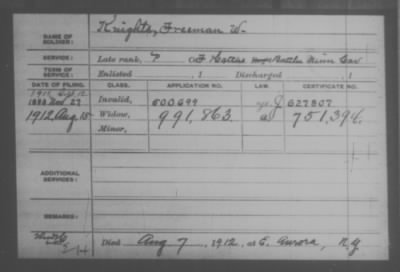 NAME OF SOLDIER: Knights, Freeman W.
SERVICE: Late rank, P Co F Hatch's Battn Minn Cav
TERM OF SERVICE: Enlisted , 1 Discharged , 1
DATE OF FILING. CLASS. APPLICATION NO. LAW. CERTIFICATE NO.
1888 Nov. 27 Invalid, 500699 J 627807
1912 Aug 15 Widow, 991,863 a 751,394.
Minor,
ADDITIONAL SERVICES:
REMARKS:
Died Aug 7, 1912, at E. Aurora, N.Y.